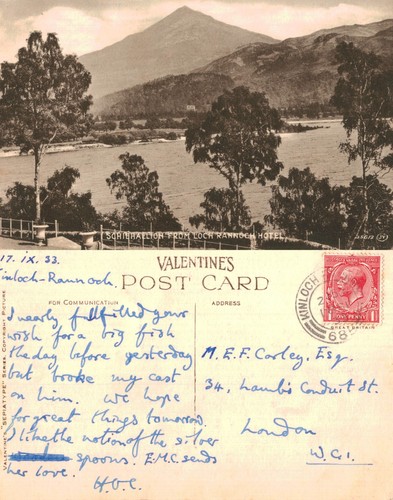 SCHIEHALLION FROM LOCH RANNOCH HOTEL.
17. IX. 33.
Kinloch-Rannoch.
VALENTINE'S
POST CARD
FOR COMMUNICATION
ADDRESS
I nearly fulfilled your
wish for a big fish
the day before yesterday
but broke my cast
on him. We hope
for great things tomorrow.
I like the notion of the silver
spoons. E.M.C. sends
her love.
H.O.C.
M.E.F. Corley, Esq.
34, Lamb's Conduit St.
London
W.C.1.
VALENTINE'S "SEPIATYPE" SERIES. COPYRIGHT PICTURE
KINLOCH
68
ONE PENNY
GREAT BRITAIN